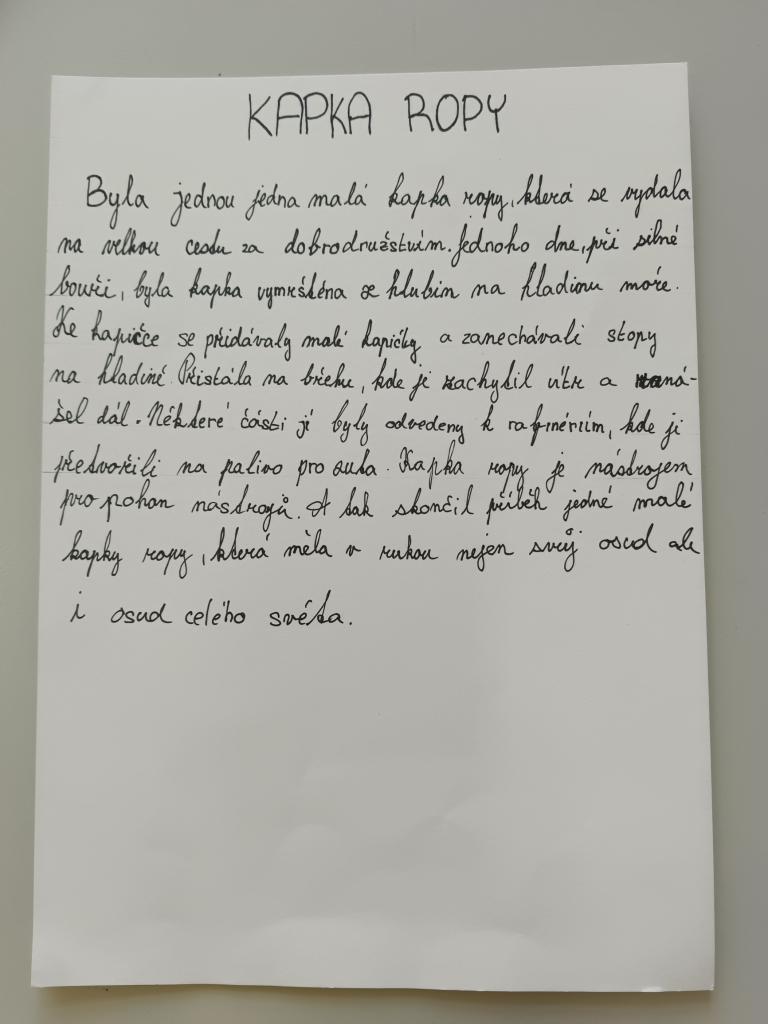 KAPKA ROPY
Byla jednou jedna malá kapka ropy, která se vydala
na velkou cestu za dobrodružstvím. Jednoho dne, při silné
bouři, byla kapka vymrštěna ze hlubin na hladinu moře.
Ke kapičce se přidávaly malé kapičky a zanechávali stopy
na hladině. Přistála na břehu, kde ji zachytil vítr a una-
šel dál. Některé části jí byly odvedeny k rafinériím, kde ji
přetvořili na palivo pro auta. Kapka ropy je nástrojem
pro pohon nástrojů. A tak skončil příběh jedné malé
kapky ropy, která měla v rukou nejen svůj osud ale
i osud celého světa.